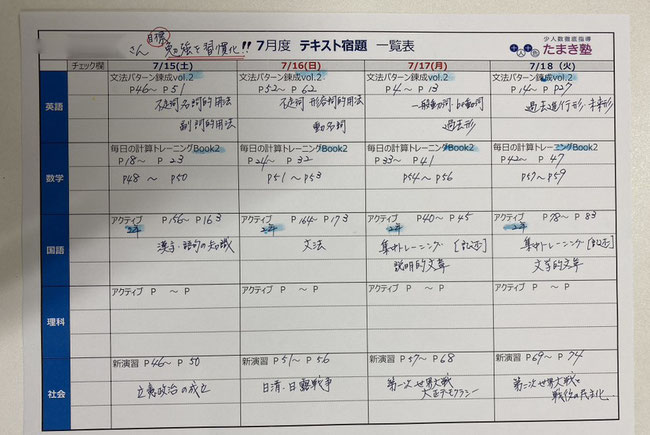 目標
さん 勉強を習慣化!! 7月度 テキスト宿題 一覧表
少人数徹底指導
たまき塾
チェック欄 7/15(土) 7/16(日) 7/17(月) 7/18(火)
英語
文法パターン錬成vol.2 文法パターン錬成vol.2 文法パターン錬成vol.2 文法パターン錬成vol.2
P46~ P51 P52~ P62 P4~ P13 P14~ P27
不定詞 名詞的用法 不定詞 形容詞的用法 一般動詞 be動詞 過去進行形・未来形
副詞的用法 動名詞 過去形
数学
毎日の計算トレーニングBook2 毎日の計算トレーニングBook2 毎日の計算トレーニングBook2 毎日の計算トレーニングBook2
P18~ P23 P24~ P32 P33~ P41 P42~ P47
P48 ~ P50 P51 ~ P53 P54 ~ P56 P57 ~ P59
国語
アクティブ P156~ P163 アクティブ P164~ P173 アクティブ P40~ P45 アクティブ P78~ P83
2年 2年 2年 2年
漢字・語句の知識 文法 集中トレーニング [記述] 集中トレーニング [記述]
説明的文章 文学的文章
理科
アクティブ P ~ P アクティブ P ~ P アクティブ P ~ P アクティブ P ~ P
社会
新演習 P46~ P50 新演習 P51~ P56 新演習 P57~ P68 新演習 P69~ P74
立憲政治の成立 日清・日露戦争 第一次世界大戦 第二次世界大戦と
大正デモクラシー 戦後の民主化